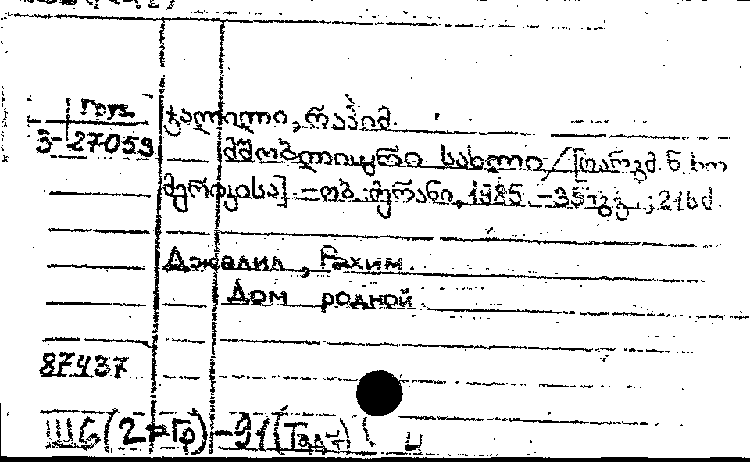 Груз
3-27059
ჯალილი, რაჰიმ.
მშობლიური სახლი / [თარგმ. ნ. ხო
მერიკისა] – თბ.: მერანი, 1985. – 35 გვ.; 21 სმ.
Джалил, Рахим.
Дом родной.
87437
Ш6(2=Гр)-91(Тадж)